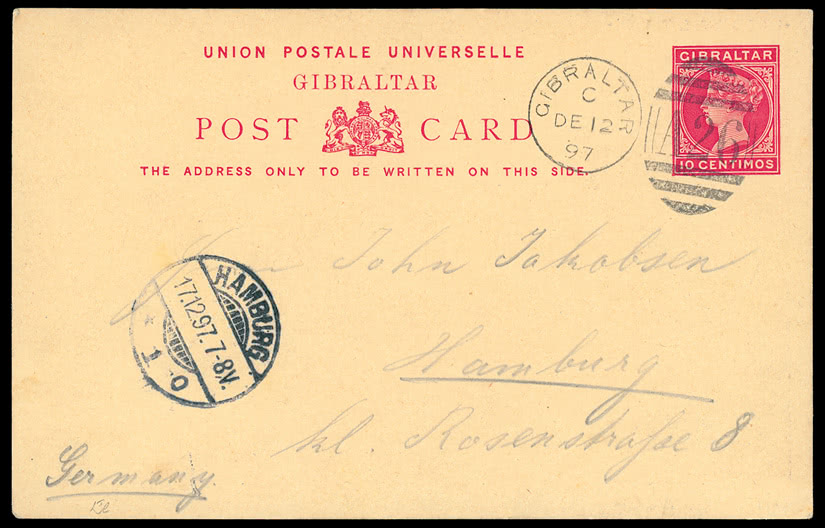 UNION POSTALE UNIVERSELLE
GIBRALTAR
POST CARD
THE ADDRESS ONLY TO BE WRITTEN ON THIS SIDE.
GIBRALTAR
C
DE 12
97
GIBRALTAR
A26
10 CENTIMOS
Herrn John Jakobsen
Hamburg
kl. Rosenstraſse 8
Germany.
HAMBURG
17.12.97. 7-8V.
* 1 O